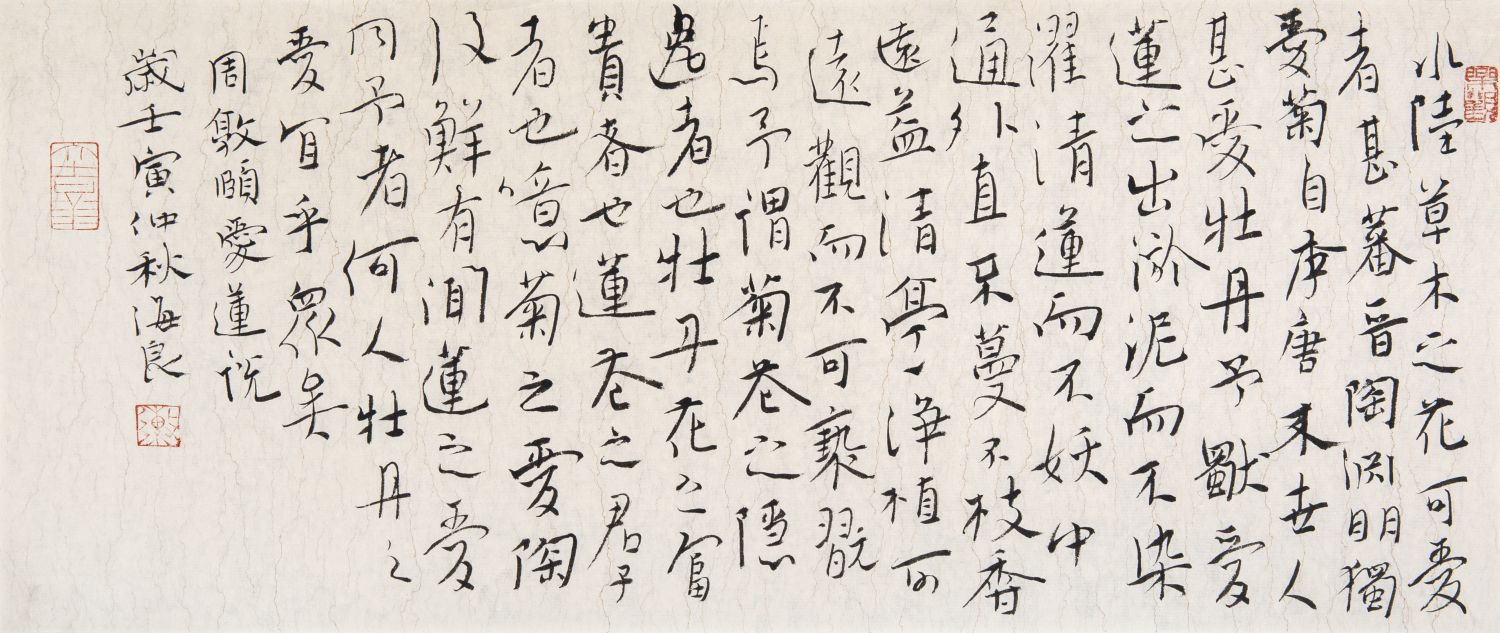 水陸草木之花可愛
者甚蕃晉陶淵明獨
愛菊自李唐来世人
甚愛牡丹予獨愛
蓮之出淤泥而不染
濯清蓮而不妖中
通外直不蔓不枝香
遠益清亭亭淨植可
遠觀而不可褻翫
焉予謂菊花之隱
逸者也牡丹花之富
貴者也蓮花之君子
者也噫菊之愛陶
後鮮有聞蓮之愛
同予者何人牡丹之
愛宜乎眾矣
周敦頤愛蓮説
歲壬寅仲秋海良